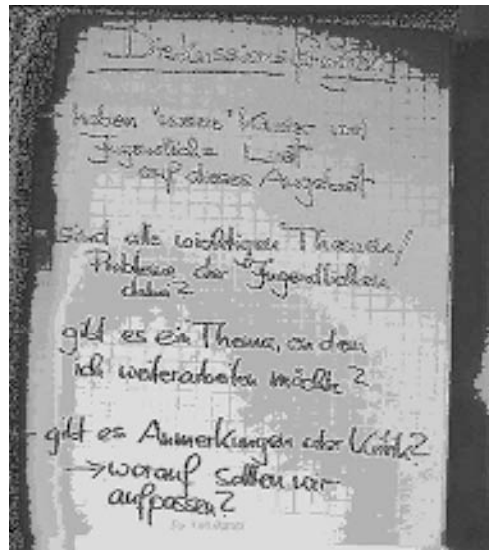 Diskussionsfragen
- haben "unsere" Kinder und
Jugendliche Lust
auf dieses Angebot
- sind alle wichtigen Themen/
Probleme der Jugendlichen
dabei?
gibt es ein Thema, an dem
ich weiterarbeiten möchte?
- gibt es Anmerkungen oder Kritik?
→ worauf sollten wir
aufpassen?